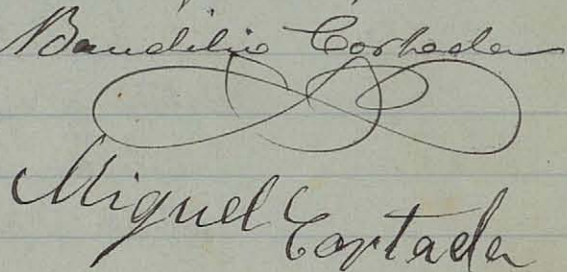 Baudilio Cortada
Miguel Cortada